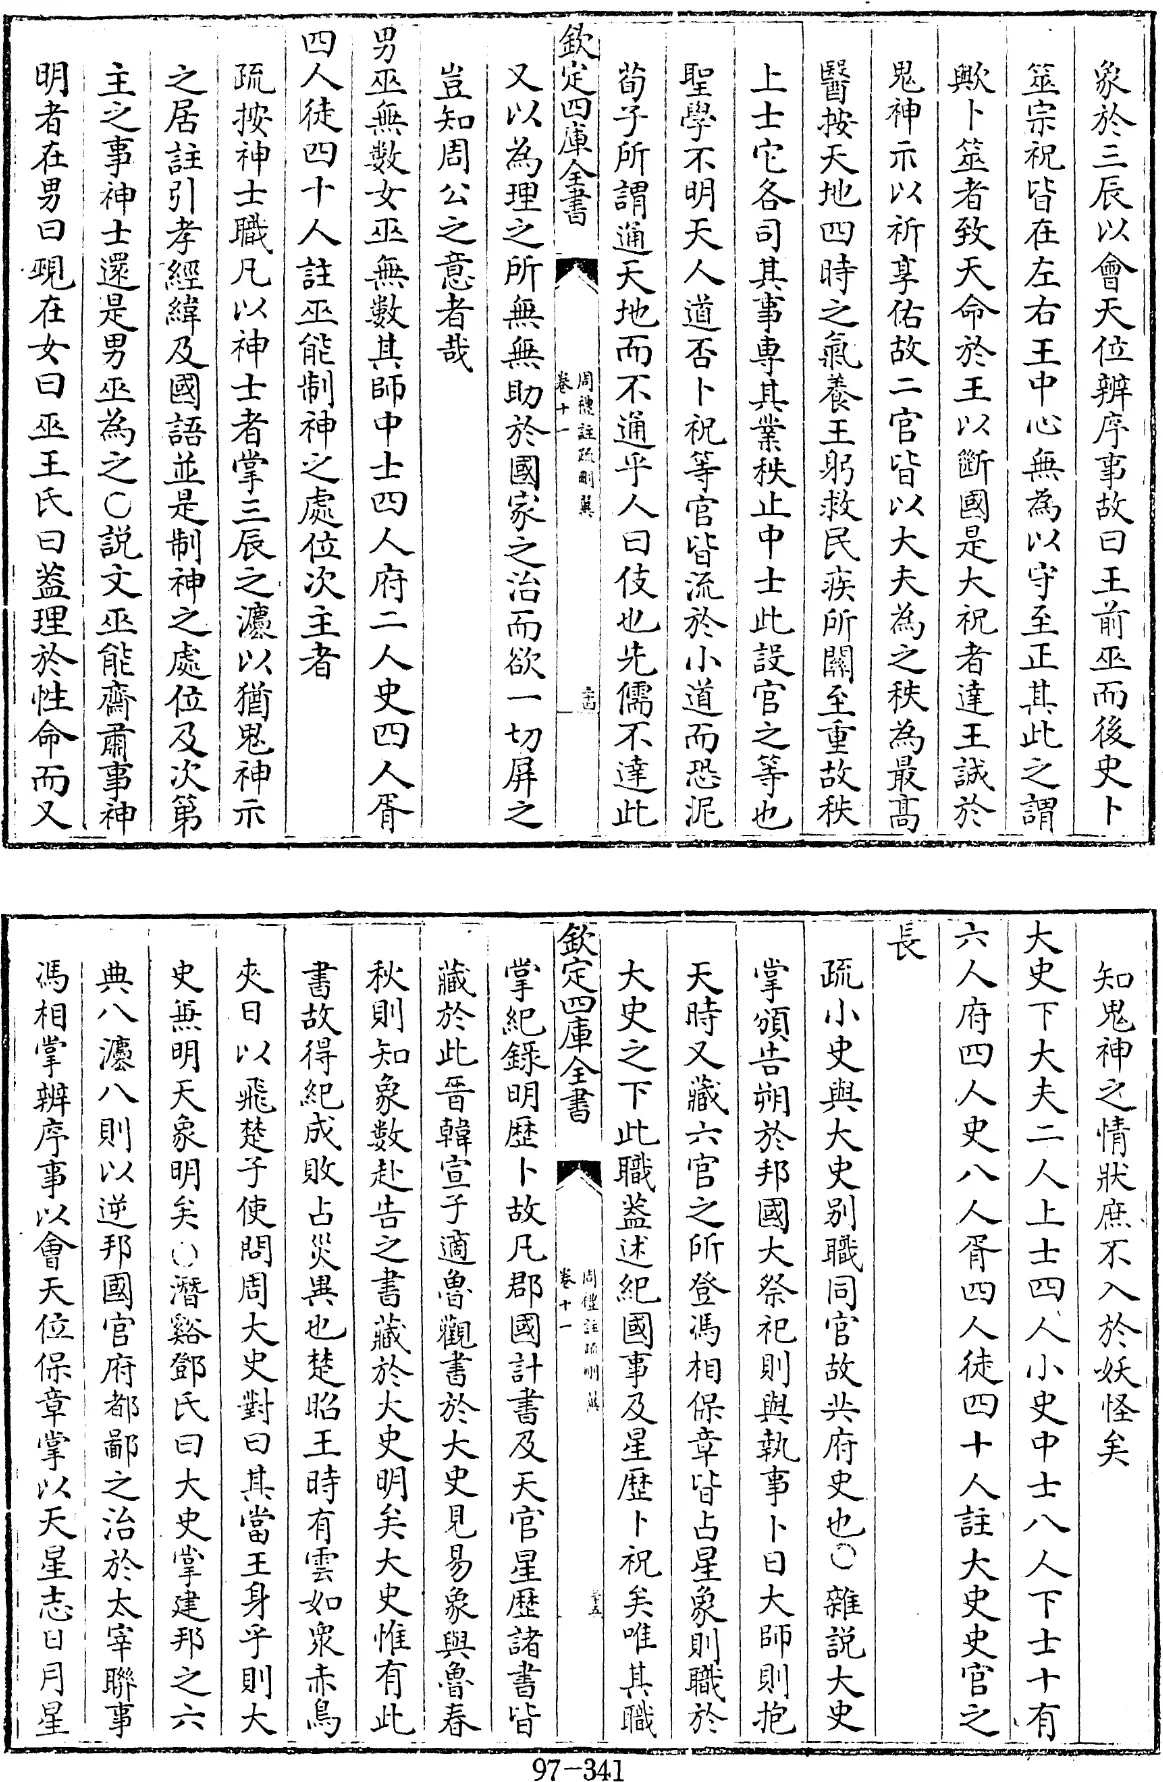 象於三辰以會天位辨序事故曰王前巫而後史卜
筮宗祝皆在左右王中心無為以守至正其此之謂
歟卜筮者致天命於王以斷國是大祝者達王誠於
鬼神示以祈享佑故二官皆以大夫為之秩為最高
醫按天地四時之氣養王躬救民疾所關至重故秩
上士它各司其事専其業秩止中士此設官之等也
聖學不明天人道否卜祝等官皆流於小道而恐泥
荀子所謂通天地而不通乎人曰伎也先儒不達此
欽定四庫全書
周禮註疏刪翼
卷十一
二十四
又以為理之所無無助於國家之治而欲一切屏之
豈知周公之意者哉
男巫無數女巫無數其師中士四人府二人史四人胥
四人徒四十人註巫能制神之處位次主者
疏按神士職凡以神士者掌三辰之灋以猶鬼神示
之居註引孝經緯及國語並是制神之處位及次第
主之事神士還是男巫為之○説文巫能齋肅事神
明者在男曰覡在女曰巫王氏曰葢理於性命而又
知鬼神之情狀庶不入於妖怪矣
大史下大夫二人上士四人小史中士八人下士十有
六人府四人史八人胥四人徒四十人註大史史官之
長
疏小史與大史别職同官故共府史也○雜説大史
掌頒告朔於邦國大祭祀則與執事卜日大師則抱
天時又藏六官之所登馮相保章皆占星象則職於
大史之下此職葢述紀國事及星歴卜祝矣唯其職
欽定四庫全書
周禮註疏刪翼
卷十一
二十五
掌紀録明歴卜故凡郡國計書及天官星歴諸書皆
藏於此晉韓宣子適魯觀書於大史見易象與魯春
秋則知象數赴告之書藏於大史明矣大史惟有此
書故得紀成敗占災異也楚昭王時有雲如衆赤鳥
夾日以飛楚子使問周大史對曰其當王身乎則大
史兼明天象明矣○潛谿鄧氏曰大史掌建邦之六
典八灋八則以逆邦國官府都鄙之治於太宰聯事
馮相掌辨序事以會天位保章掌以天星志日月星
97-341